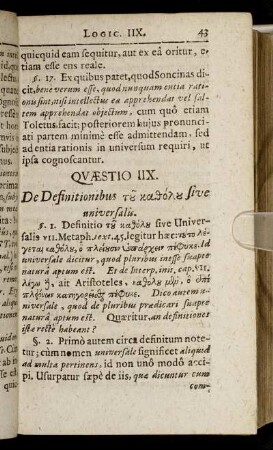 LOGIC. IIX. 43
quicquid eam sequitur, aut ex eâ oritur, e-
tiam esse ens reale.
§. 17. Ex quibus patet, quod Soncinas di-
cit, bene verum esse, quod nunquam entia rati-
onis sint, nisi intellectus ea apprehendat vel sal-
tem apprehendat objectum, cum quô etiam
Toletus facit: posteriorem kujus pronunci-
ati partem minimè esse admittendam, sed
ad entia rationis in universum requiri, ut
ipsa cognoscantur.
QVÆSTIO IIX.
De Definitionibus τȣ̃ καθόλȣ sive
universalis.
§. 1. Definitio τȣ̃ καθόλȣ sive Univer-
salis VII. Metaph. text. 45. legitur hæc: τȣ̃το λέ-
γεται καθόλȣ, ὃ πλείοσιν ὑπάρχειν πέφυκε. Id
universale dicitur, quod pluribus inesse suapte
naturâ aptum est. Et de Interp. init. cap. VII.
λέγω δὴ, ait Aristoteles, καθόλȣ μὲν, ὃ ἐπὶ
πλειόνων κατηγορεῖσθαι πέφυκε. Dico autem u-
niversale, quod de pluribus prædicari suapte
naturâ aptum est. Quæritur, an definitiones
istæ rectè habeant?
§. 2. Primò autem circa definitum note-
tur; cùm nomen universale significet aliquod
ad multa pertinens, id non unô modô acci-
pi. Usurpatur sæpè de iis, quæ dicuntur cum
com-